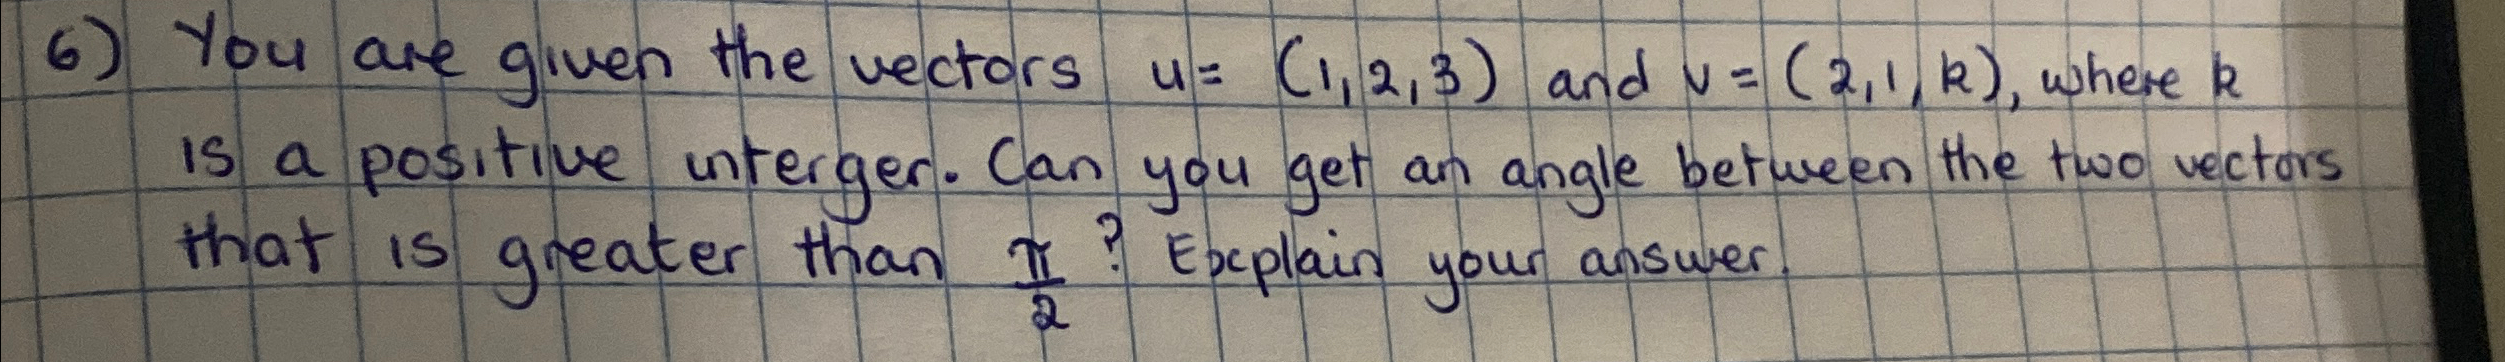 6) You are given the vectors u = (1,2,3) and v = (2,1,k), where k
is a positive interger. Can you get an angle between the two vectors
that is greater than π/2? Explain your answer.